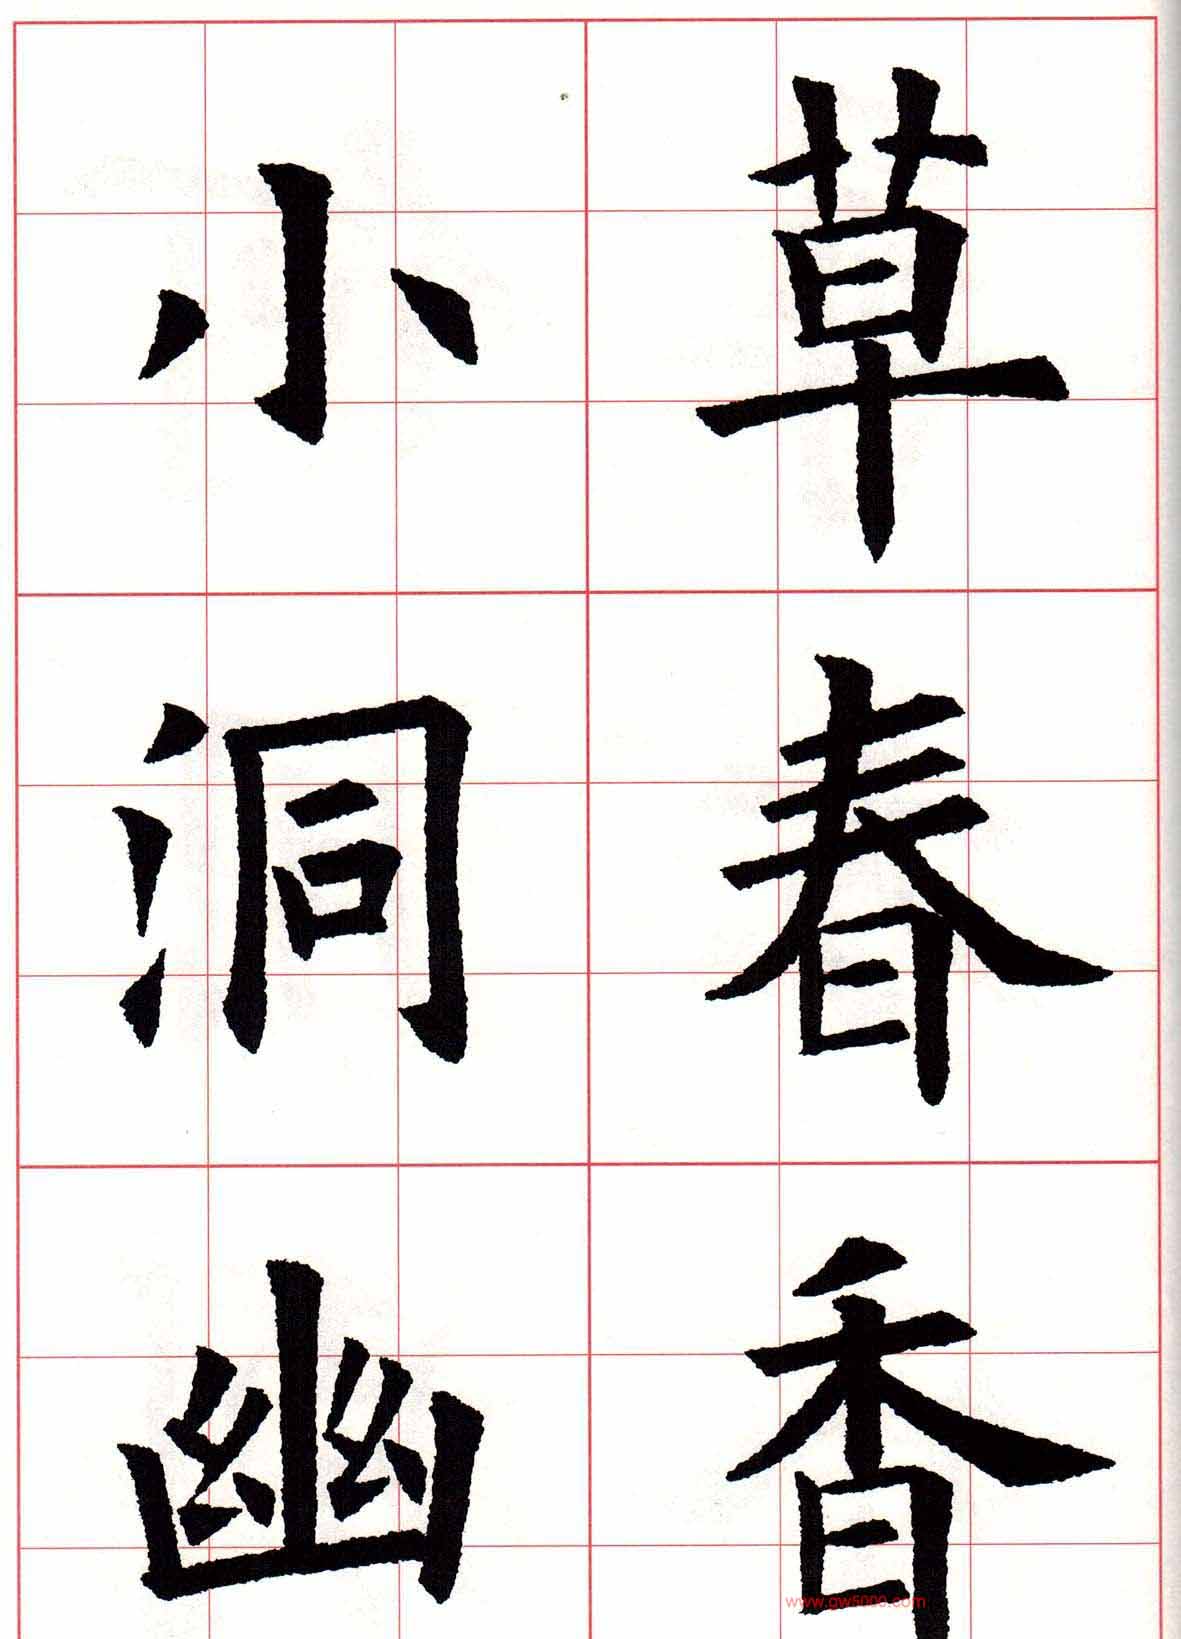 草春香
小洞幽
www.gw5000.com